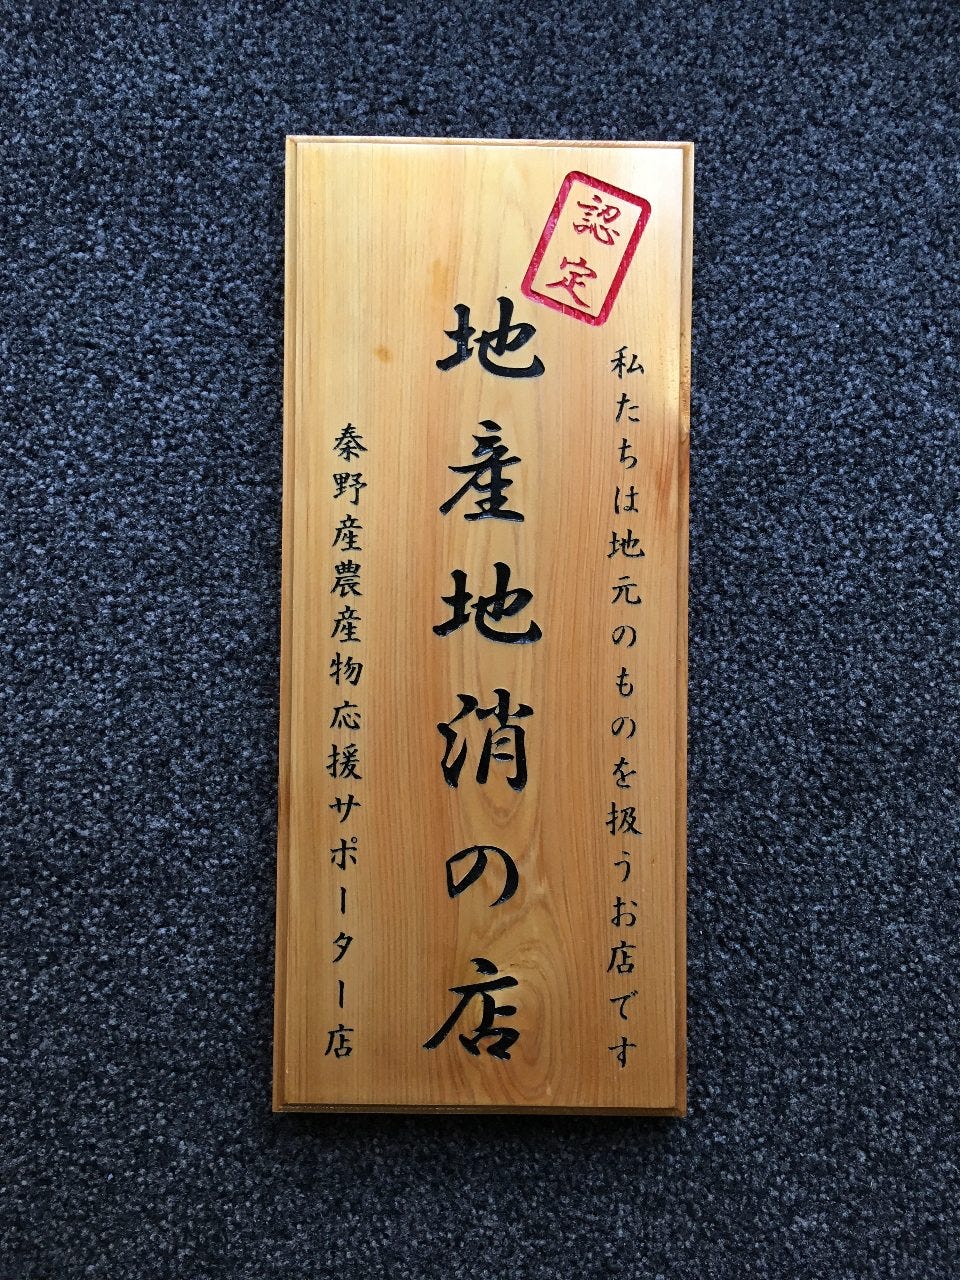 認定
私たちは地元のものを扱うお店です
地産地消の店
秦野産農産物応援サポーター店